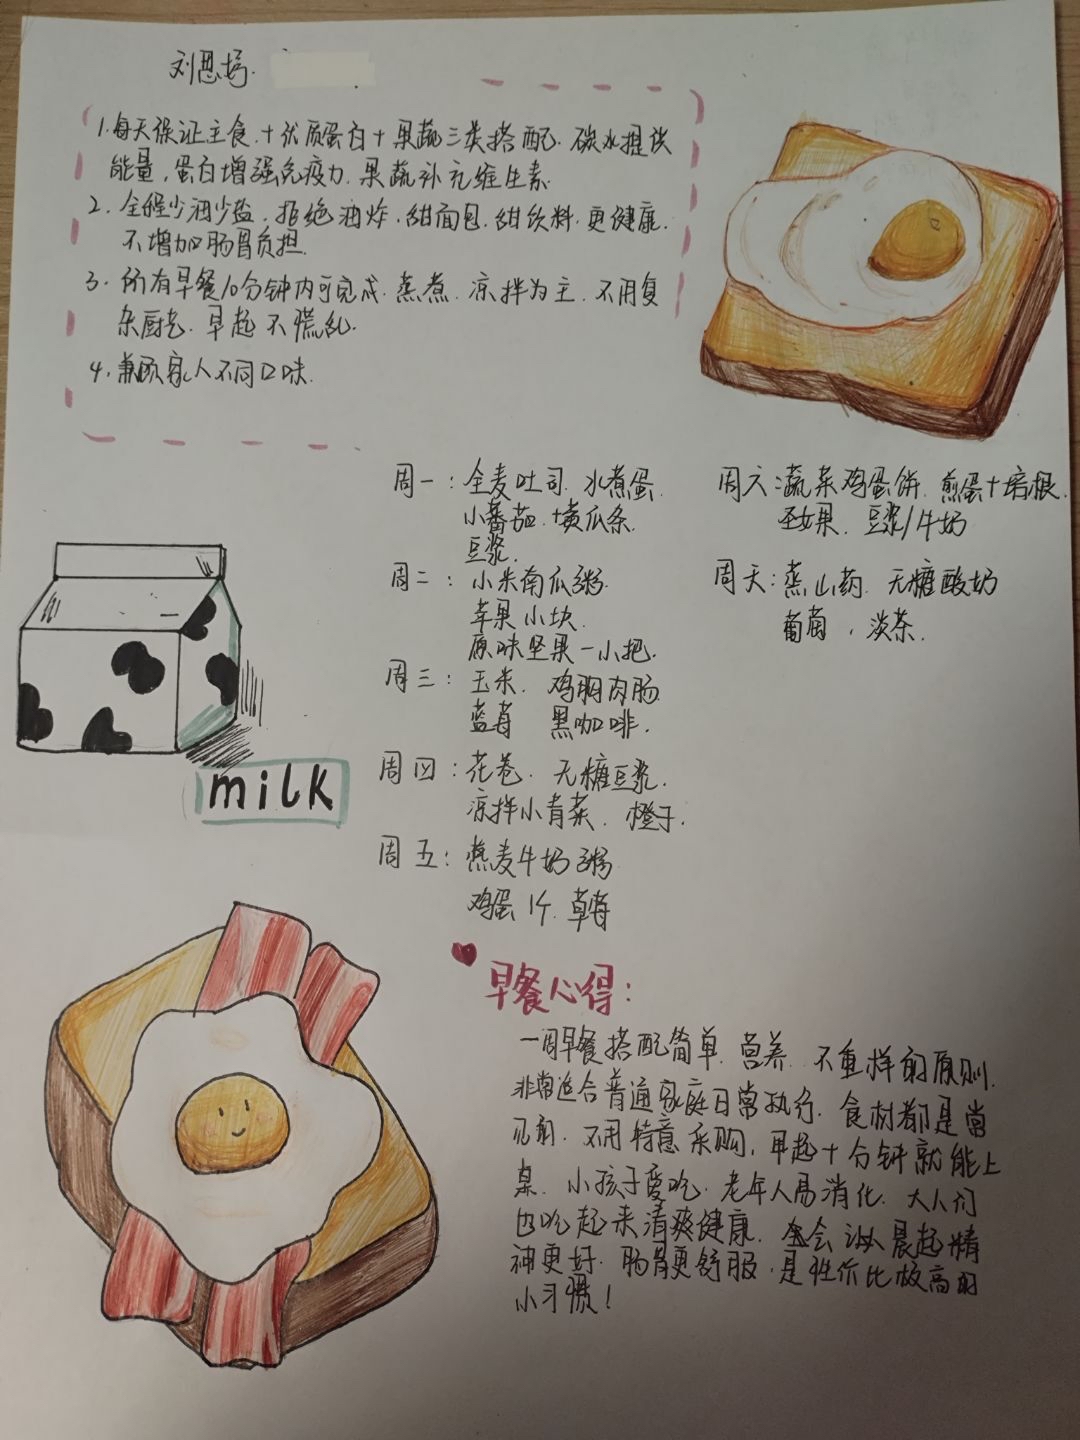 刘思
1.每天保证主食.+优质蛋白+果蔬三类搭配.碳水提供
能量,蛋白增强免疫力.果蔬补充维生素.
2.全程少油少盐.拒绝油炸.甜面包.甜饮料.更健康.
不增加肠胃负担.
3.所有早餐10分钟内可完成.蒸煮.凉拌为主.不用复
杂厨艺.早起不慌乱.
4.兼顾家人不同口味.
周一:全麦吐司.水煮蛋.
小番茄.+黄瓜条.
豆浆.
周二:小米南瓜粥.
苹果小块.
原味坚果一小把.
周三:玉米.鸡胸肉肠
蓝莓 黑咖啡.
周四:花卷.无糖豆浆.
凉拌小青菜.橙子.
周五:燕麦牛奶粥
鸡蛋1个.草莓
周六:蔬菜鸡蛋饼.煎蛋+培根.
圣女果.豆浆/牛奶
周天:蒸山药.无糖酸奶
葡萄,淡茶.
milk
早餐心得:
一周早餐搭配简单.营养.不重样的原则.
非常适合普通家庭日常执行.食材都是常
见的.不用特意采购,早起十分钟就能上
桌.小孩子爱吃.老年人易消化.大人们
也吃起来清爽健康.会让人晨起精
神更好.肠胃更舒服.是性价比极高的
小习惯!